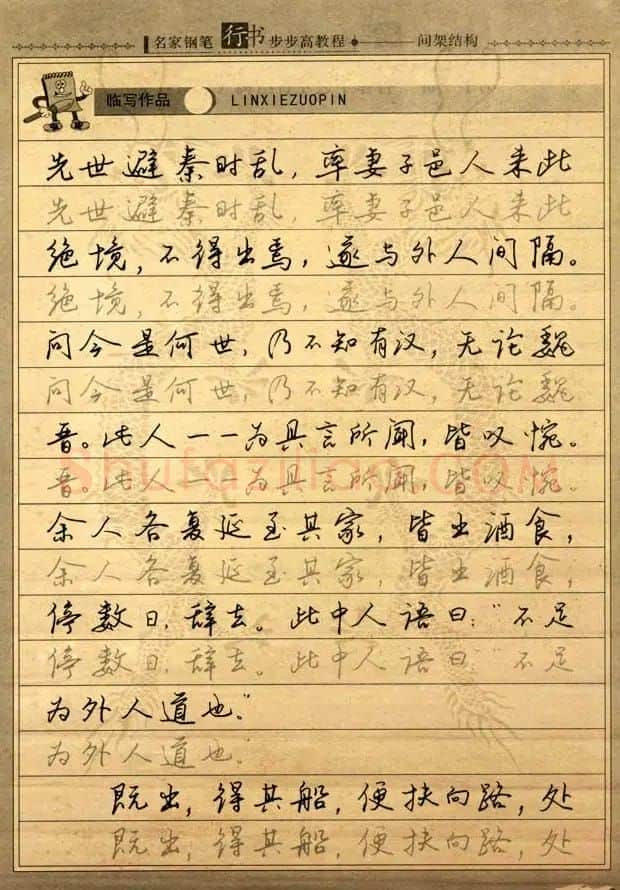 名家钢笔 行书 步步高教程 间架结构
临写作品 LINXIEZUOPIN
先世避秦时乱，率妻子邑人来此
先世避秦时乱，率妻子邑人来此
绝境，不得出焉，遂与外人间隔。
绝境，不得出焉，遂与外人间隔。
问今是何世，乃不知有汉，无论魏
问今是何世，乃不知有汉，无论魏
晋。此人一一为具言所闻，皆叹惋。
晋。此人一一为具言所闻，皆叹惋。
余人各复延至其家，皆出酒食，
余人各复延至其家，皆出酒食，
停数日，辞去。此中人语曰：“不足
停数日，辞去。此中人语曰：“不足
为外人道也。”
为外人道也。”
既出，得其船，便扶向路，处
既出，得其船，便扶向路，处